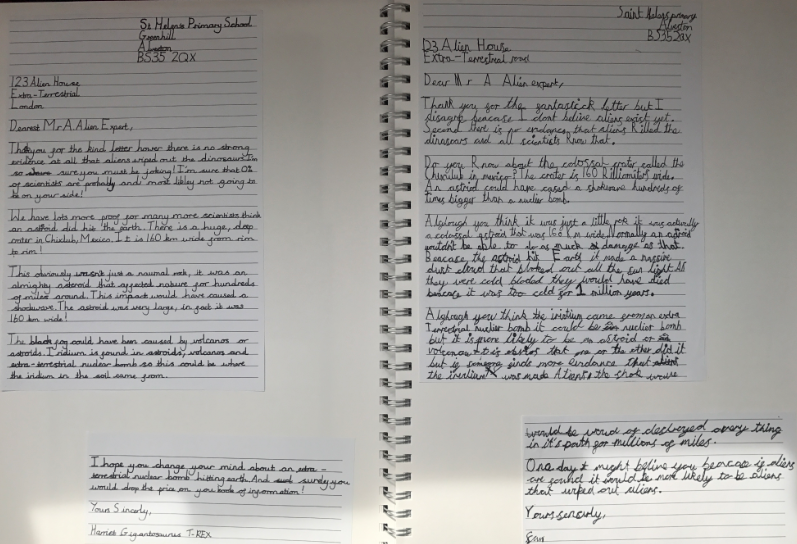 St Helens Primary School
Greenhill
Alveston
BS35 2QX
123 Alien House
Extra-Terrestrial
London
Dearest Mr A Alien Expert,
Thank you for the kind letter hover there is no strong
evidence at all that aliens wiped out the dinosaurs I'm
so sure you must be joking! I'm sure that 0%
of scientists are probally and most likley not going to
be on your side!
We have lots more proof for many more scientists think
an astroid did hit the earth. There is a huge, deep
crater in Chixlub, Mexico. It is 160 km wide from rim
to rim!
This obviously wasn't just a naumal rock, it was an
almighty asteroid that affected nature for hundreds
of miles around. This impact would have caused a
shockwave. The astroid was very large, in fact it was
160 km wide!
The black fog could have been caused by volcanos or
astroids. Iridium is found in astroids, volcanos and
extra-terrestrial nuclear bomb so this could be where
the iridium in the soil came from.
I hope you change your mind about an extra-
terrestrial nuclear bomb hitting earth. And surely you
would drop the price on you book of information!
Yours Sincerly,
Harriet Gigantosaurus T-REX
Saint
Alveston
BS35 2QX
D3 Alien House
Extra-Terrestrial road
Dear Mr A Alien expert,
Thank you for the fantastick letter but I
disagre beacase I dont belive aliens exist yet.
Second there is no evidance that aliens killed the
dinosaurs and all scientists know that.
Do you know about the colossal crater called the
Chixulub in mexico? The crater is 160 killomitors wide.
An astrid could have cased a shokwave hundreds of
times bigger than a nuclier bomb.
Alghough you think it was just a little rok it was actually
a colossal astroid that was 166 km wide. Normally an astroid
wouldn't be able to do as much damage as that.
Beacase the astroid hit Earth it made a massive
dust cloud that bloked out all the sun light. As
they were cold bloded they would have died
beacase it was too cold for 1 million years.
Alghough you think the iridium came from an extra
Terrestrial nuclier bomb it could be nuclier bomb
but it is more likely to be an astroid or
volcano. It is obvios that one or the other did it
but if finds more evidance that
the was made Aliens the shok
would be destroyed every thing
in it's path for millions of miles.
One day I might belive you beacase if aliens
are found it would be more likely to be aliens
that wiped out
Yours sencirly,